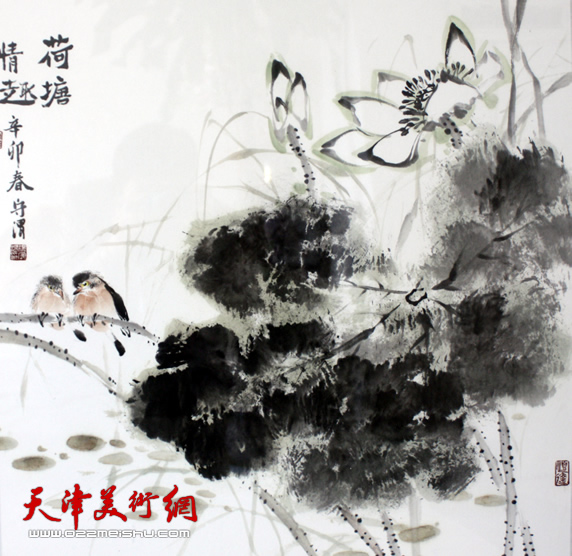 荷塘
情趣
辛卯春
天津美術網
www.022meishu.com